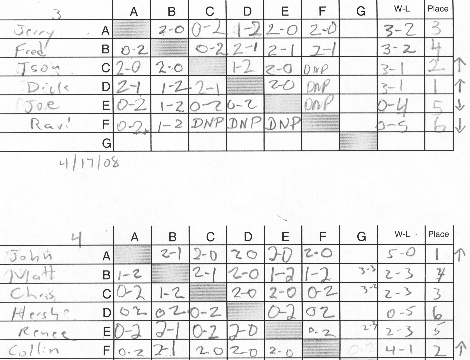 3 A B C D E F G W-L Place
Jerry A 2-0 0-2 1-2 2-0 2-0 3-2 3
Fred B 0-2 0-2 2-1 2-1 2-1 3-2 4
Tson C 2-0 2-0 1-2 2-0 DNP 3-1 2 ↑
Dick D 2-1 1-2 2-1 2-0 DNP 3-1 1 ↑
Joe E 0-2 1-2 0-2 0-2 DNP 0-4 5 ↓
Ravi F 0-2 1-2 DNP DNP DNP 0-5 6 ↓
G
4/17/08
4 A B C D E F G W-L Place
John A 2-1 2-0 2-0 2-0 2-0 5-0 1 ↑
Matt B 1-2 2-1 2-0 1-2 1-2 2-3 4
Chris C 0-2 1-2 2-0 2-0 0-2 2-3 3
D 0-2 0-2 0-2 0-2 0-2 0-5 6
Renee E 0-2 2-1 0-2 2-0 0-2 2-3 5
Collin F 0-2 2-1 2-0 2-0 2-0 4-1 2 ↑